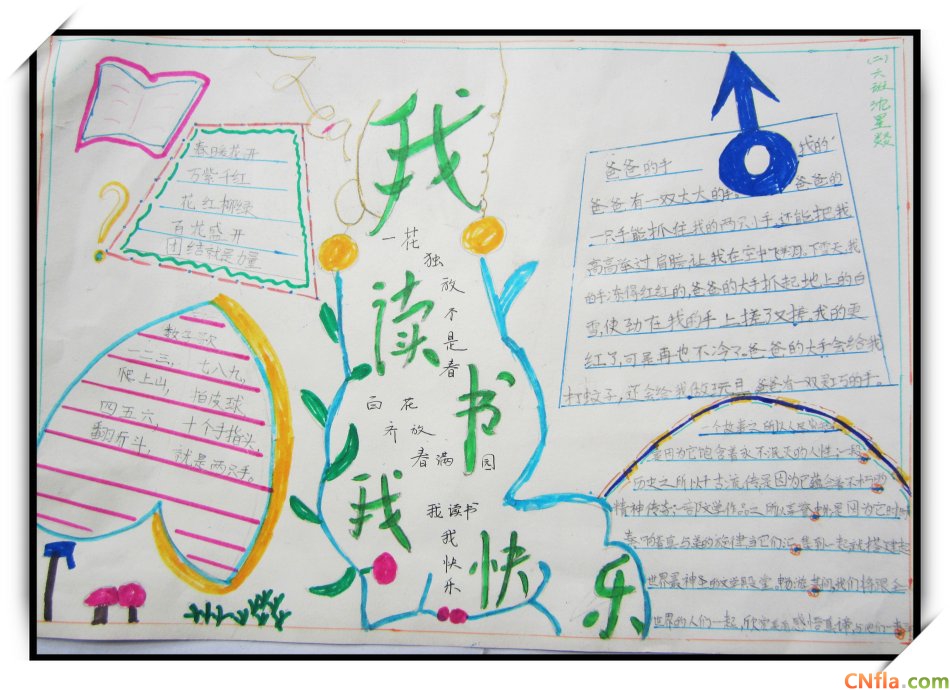 (二)六班
我
读
书
我
快
乐
春暖花开
万紫千红
花红柳绿
百花盛开
团结就是力量
一花
独
放
不
是
春
百花
齐放
春满园
我读书
我
快
乐
数子歌
一二三, 七八九,
爬上山, 拍皮球,
四五六, 十个手指头,
翻斤斗, 就是两只手。
爸爸的手 我的
爸爸有一双大大的手 爸爸的
一只手能抓住我的两只小手,还能把我
高高举过肩 让我在空中飞翔。下雪天,我
的手冻得红红的,爸爸的大手抓起地上的白
雪,使劲在我的手上搓了又搓,我的更
红了,可是再也不冷了。爸爸的大手会给我
打蚊子,还会给我做 爸爸有一双灵巧的手。
一个故事之所以
是因为它饱含着永不泯灭的人性;一段
历史之所以千古流传是因为它蕴含着不朽的
精神传奇;一部文学作品之所以 是因为它
世界最神 的文学殿堂,畅游其间,我们将跟全
世界的人们一起,欣赏 感悟真情,与他们一
CNfla.com